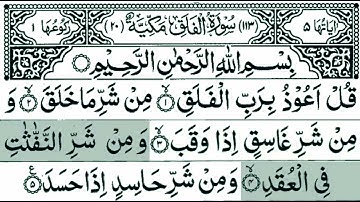 اٰیَاتُهَا ۵ (۱۱۳) سُوْرَةُ الْفَلَقِ مَكِّيَّةٌ (۲۰) رُكُوْعُهَا ۱
بِسْمِ اللّٰهِ الرَّحْمٰنِ الرَّحِيْمِ
قُلْ اَعُوْذُ بِرَبِّ الْفَلَقِ ۝۱ مِنْ شَرِّ مَا خَلَقَ ۝۲ وَ
مِنْ شَرِّ غَاسِقٍ اِذَا وَقَبَ ۝۳ وَمِنْ شَرِّ النَّفّٰثٰتِ
فِي الْعُقَدِ ۝۴ وَمِنْ شَرِّ حَاسِدٍ اِذَا حَسَدَ ۝۵